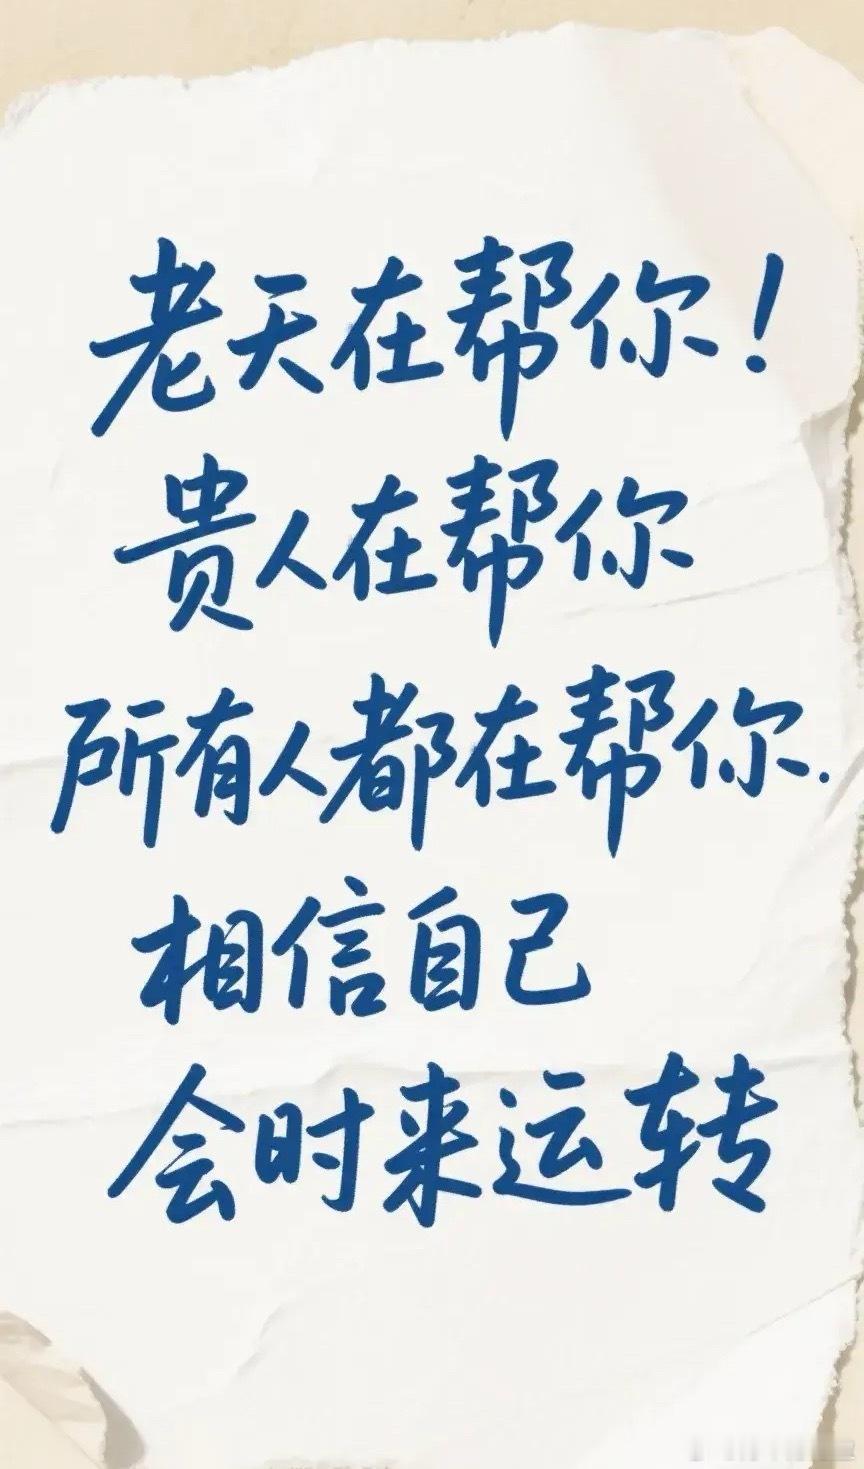 老天在帮你！
贵人在帮你
所有人都在帮你.
相信自己
会时来运转